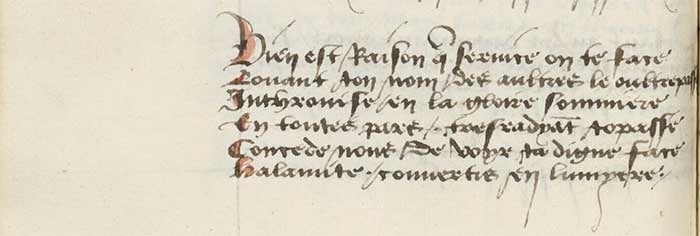 Bien est Raison q̃ service on te face
Louant ton nom / des aultres le oultrepass
Inthronise / en la gloire sommiere
En toutes pars / tresradyãt topasse
Concede nous / De voyr ta digne face
Kalamite / convertis en lumyere /